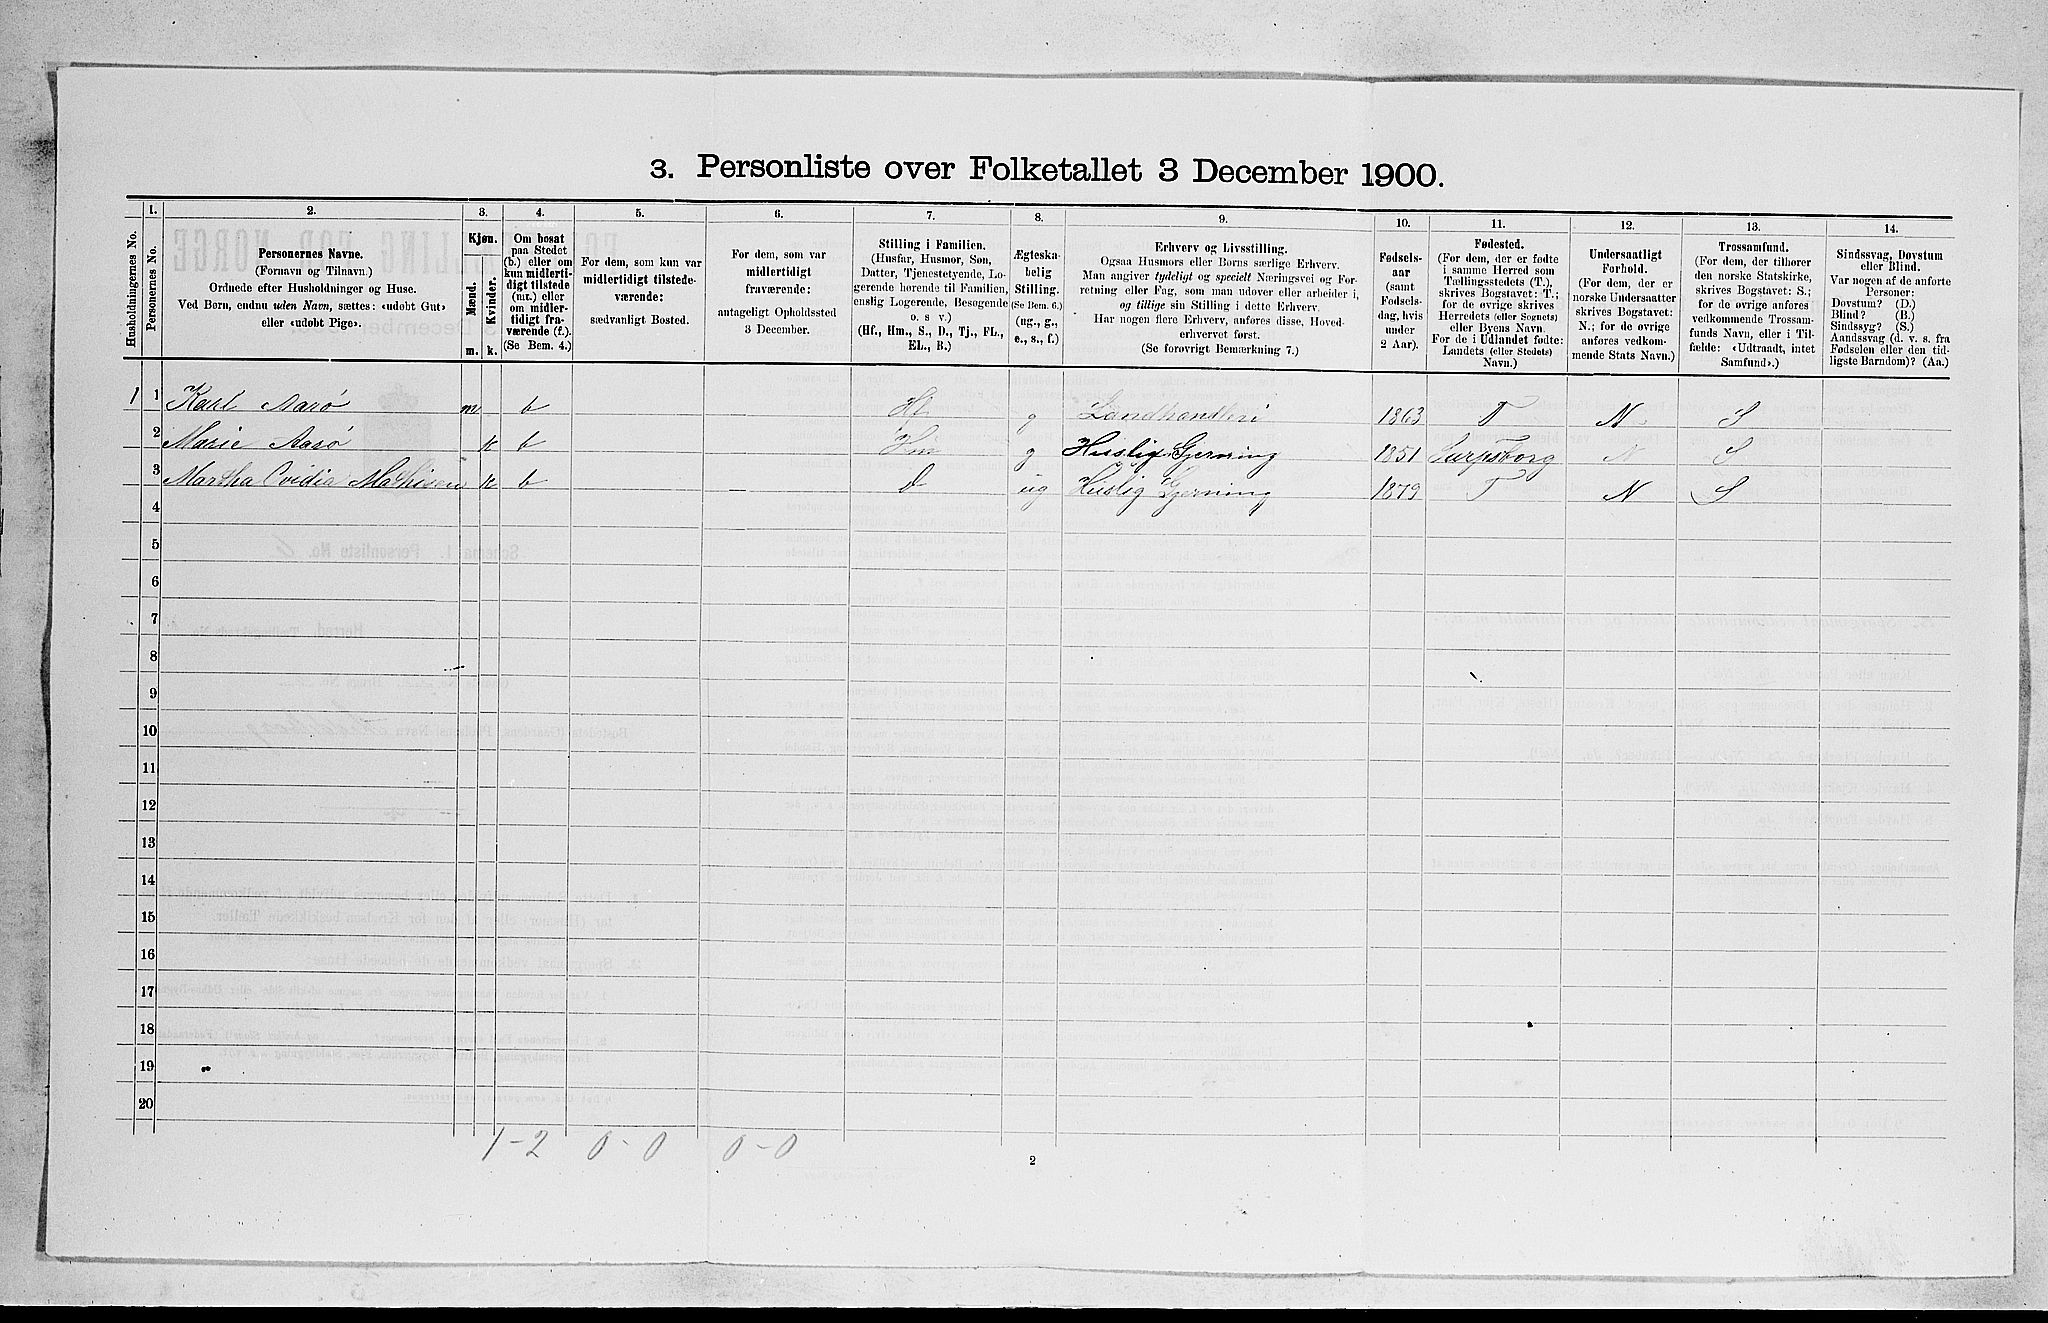 3. Personliste over Folketallet 3 December 1900.
Husholdningernes No.
1.
Personernes No.
2.
Personernes Navne.
(Fornavn og Tilnavn.)
Ordnede efter Husholdninger og Huse.
Ved Børn, endnu uden Navn, sættes: «udøbt Gut»
eller «udøbt Pige».
3.
Kjøn.
Mænd.
Kvinder.
m.
k.
4.
Om bosat
paa Stedet
(b.) eller om
kun midlerti-
digt tilstede
(mt.) eller
om midler-
tidigt fra-
værende (f.).
(Se Bem. 4.)
5.
For dem, som kun var
midlertidigt tilstede-
værende:
sædvanligt Bosted.
6.
For dem, som var
midlertidigt
fraværende:
antageligt Opholdssted
3 December.
7.
Stilling i Familien.
(Husfar, Husmor, Søn,
Datter, Tjenestetyende, Lo-
gerende hørende til Familien,
enslig Logerende, Besøgende
o. s v.)
(Hf., Hm., S., D., Tj., FL.,
EL., B.)
8.
Ægteska-
belig
Stilling.
(Se Bem. 6.)
(ug., g.,
e., s., f.)
9.
Erhverv og Livsstilling.
Ogsaa Husmors eller Børns særlige Erhverv.
Man angiver tydeligt og specielt Næringsvei og For-
retning eller Fag, som man udøver eller arbeider i,
og tillige sin Stilling i dette Erhverv.
Har nogen flere Erhverv, anføres disse, Hoved-
erhvervet først.
(Se forøvrigt Bemærkning 7.)
10.
Fødsels-
aar
(samt
Fødsels-
dag, hvis
under
2 Aar).
11.
Fødested.
(For dem, der er fødte
i samme Herred som
Tællingsstedets (T.),
skrives Bogstavet: T.;
for de øvrige skrives
Herredets (eller Sognets)
eller Byens Navn.
For de i Udlandet fødte:
Landets (eller Stedets)
Navn.)
12.
Undersaatligt
Forhold.
(For dem, der er
norske Undersaatter
skrives Bogstavet:
N.; for de øvrige
anføres vedkom-
mende Stats Navn.)
13.
Trossamfund.
(For dem, der tilhører
den norske Statskirke,
skrives Bogstavet: S.;
for de øvrige anføres
vedkommende Trossam-
funds Navn, eller i Til-
fælde: «Udtraadt, intet
Samfund».)
14.
Sindssvag, Døvstum
eller Blind.
Var nogen af de anførte
Personer:
Døvstum? (D.)
Blind? (B.)
Sindssyg? (S.)
Aandssvag (d. v. s. fra
Fødselen eller den tid-
ligste Barndom)? (Aa.)
1 1 Karl Aarö m b Hf g Landhandleri 1863 T N. S
2 Marie Aarö k b Hm g Huslig Gjerning 1851 Sarpsborg N S
3 Martha Ovidia Mathisen k b d ug Huslig Gjerning 1879 T N S
4
5
6
7
8
9
10
11
12
13
14
15
16
17
18
19
20
1-2 0-0 0-0
2